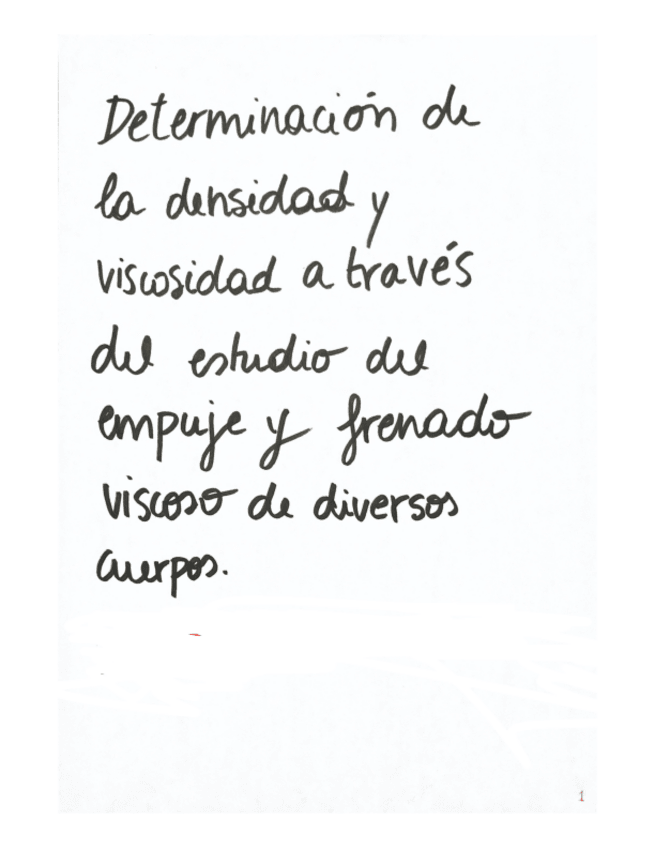 Determinación de
la densidad y
viscosidad a través
del estudio del
empuje y frenado
viscoso de diversos
cuerpos.
1